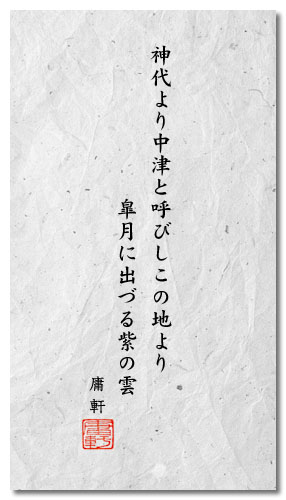 神代より中津と呼びしこの地より
皐月に出づる紫の雲
庸軒